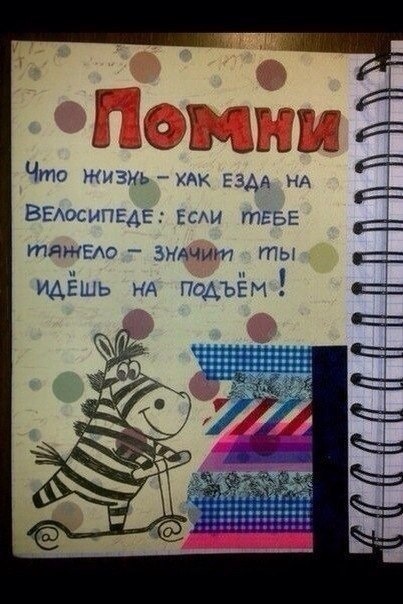 Помни
Что жизнь – как езда на
велосипеде: если тебе
тяжело – значит ты
идёшь на подъём!